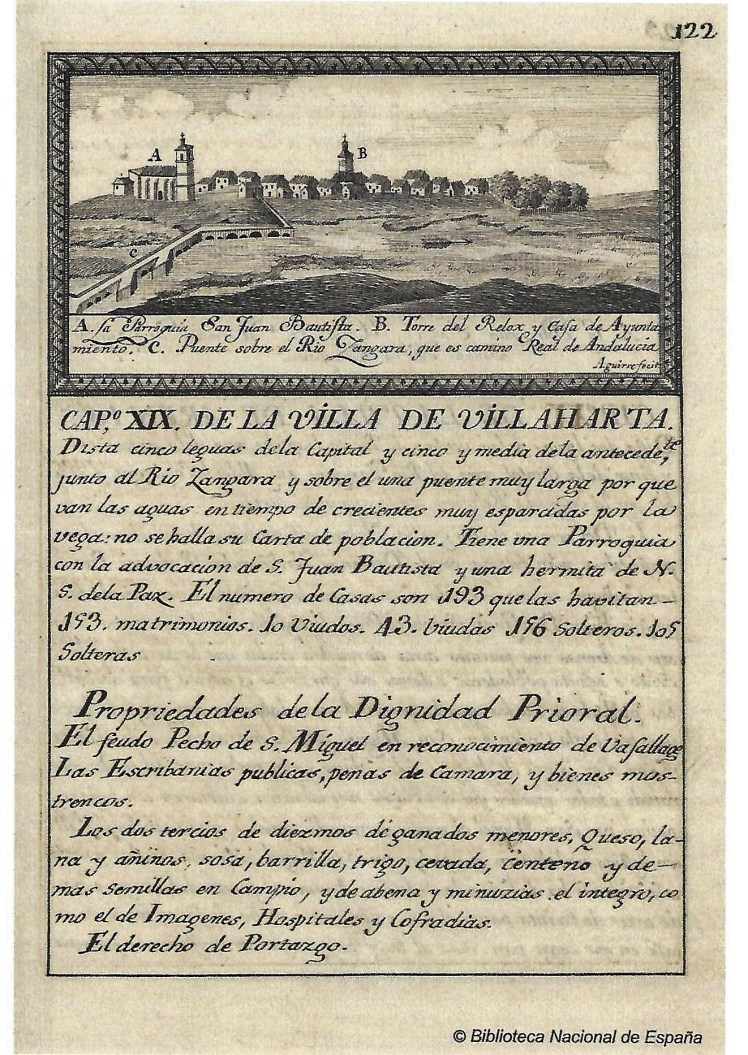 122
A
B
C
A. la Parroquia San Juan Bautista. B. Torre del Relox y Casa de Ayunta
miento. C. Puente sobre el Rio Zangara, que es camino Real de Andalucia
Aguirre fecit
CAP.º XIX. DE LA VILLA DE VILLAHARTA.
Dista cinco leguas dela Capital y cinco y media dela antecede,te
junto al Rio Zangara y sobre el una puente muy larga por que
van las aguas en tiempo de crecientes muy esparcidas por la
vega: no se halla su Carta de poblacion. Tiene una Parroquia
con la advocacion de S. Juan Bautista y una hermita de N.
S. dela Paz. El numero de Casas son 193 que las havitan-
153. matrimonios. 10 Viudos. 43. Viudas 156 Solteros. 105
Solteras
Propriedades de la Dignidad Prioral.
El feudo Pecho de S. Miguel en reconocimiento de Vasallage
Las Escribanias publicas, penas de Camara, y bienes mos-
trencos.
Los dos tercios de diezmos de ganados menores, Queso, la-
na y añinos, sosa, barrilla, trigo, cevada, Centeno y de-
mas semillas en Campio, y de abena y minuzias. el integro, co
mo el de Imagenes, Hospitales y Cofradias.
El derecho de Portazgo.
© Biblioteca Nacional de España